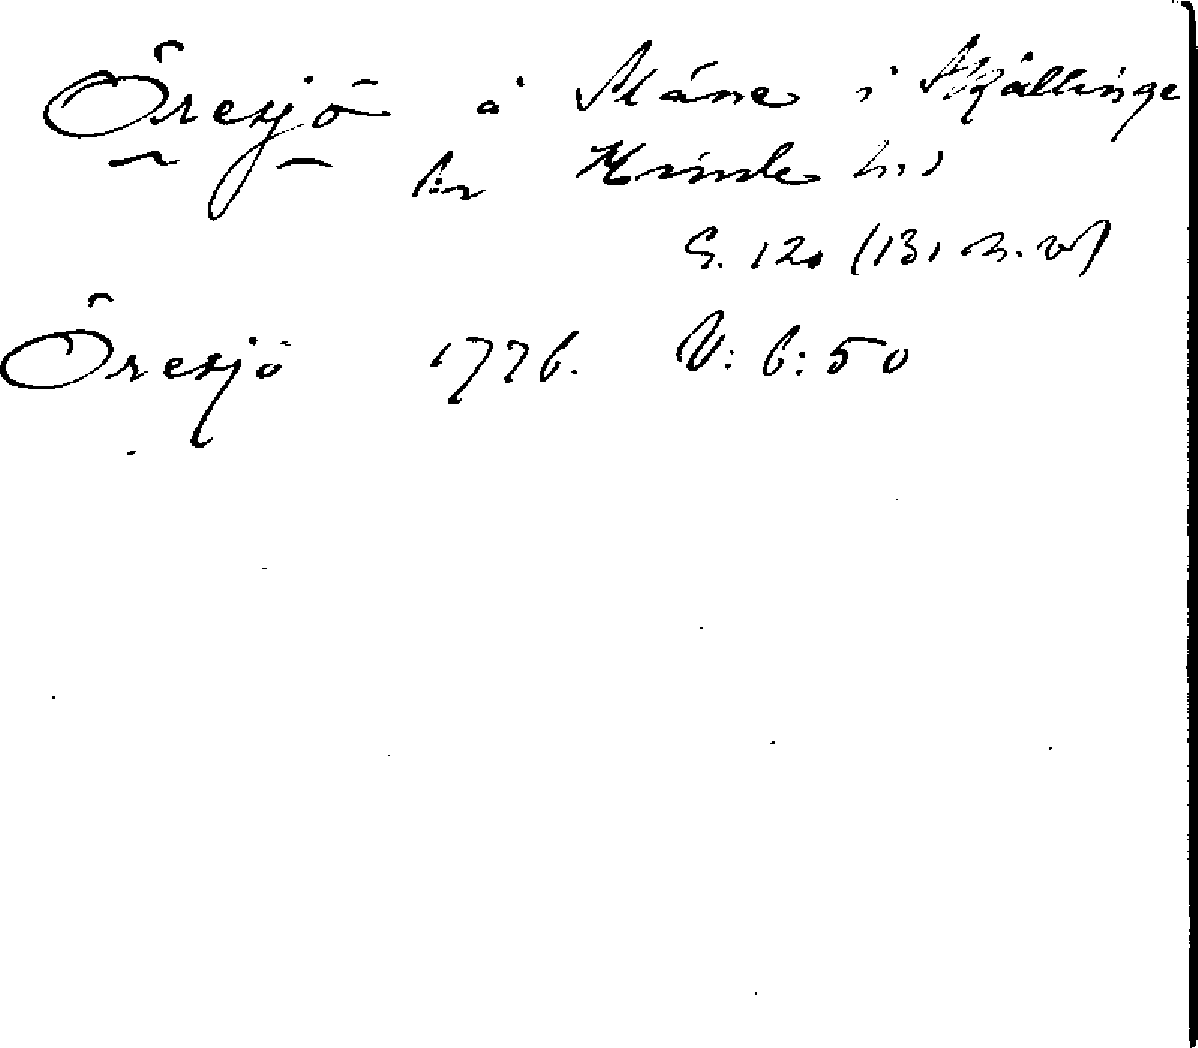 Öresjö å Måne i Skällinge
sn Himle hd
G. 120 (131 n. v)
Öresjö 1776. V: 6: 50